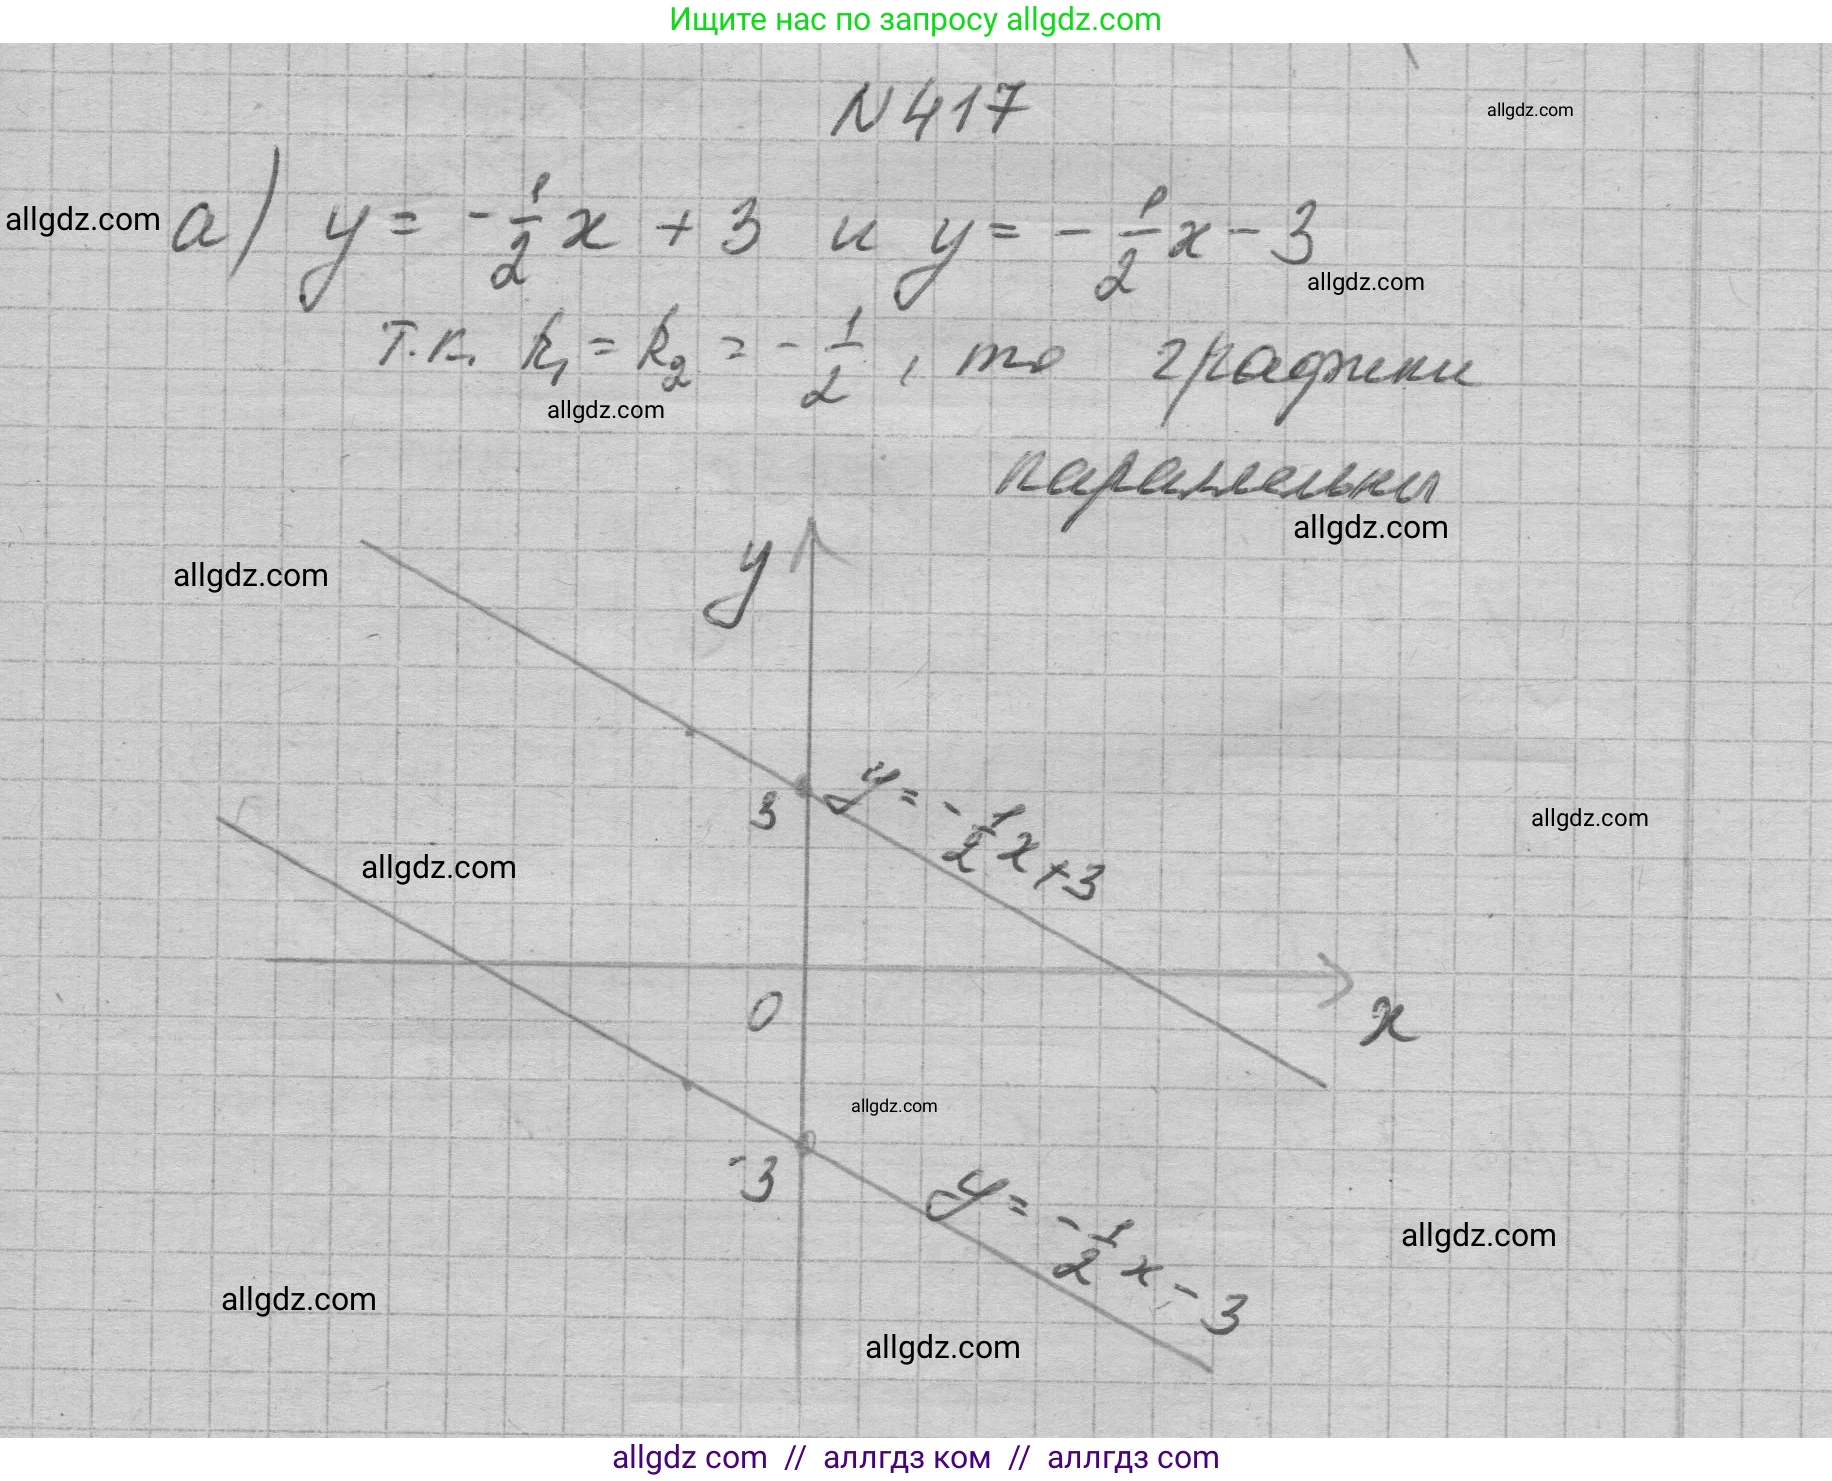 Ищите нас по запросу allgdz.com
N 417
allgdz.com
allgdz.com
а) y = -1/2 x + 3 и y = -1/2 x - 3
allgdz.com
т.к. k₁ = k₂ = -1/2, то графики
allgdz.com
параллельны
allgdz.com
y
allgdz.com
3
y = -1/2 x + 3
allgdz.com
allgdz.com
0
x
allgdz.com
-3
y = -1/2 x - 3
allgdz.com
allgdz.com
allgdz.com
allgdz com // аллгдз ком // аллгдз com